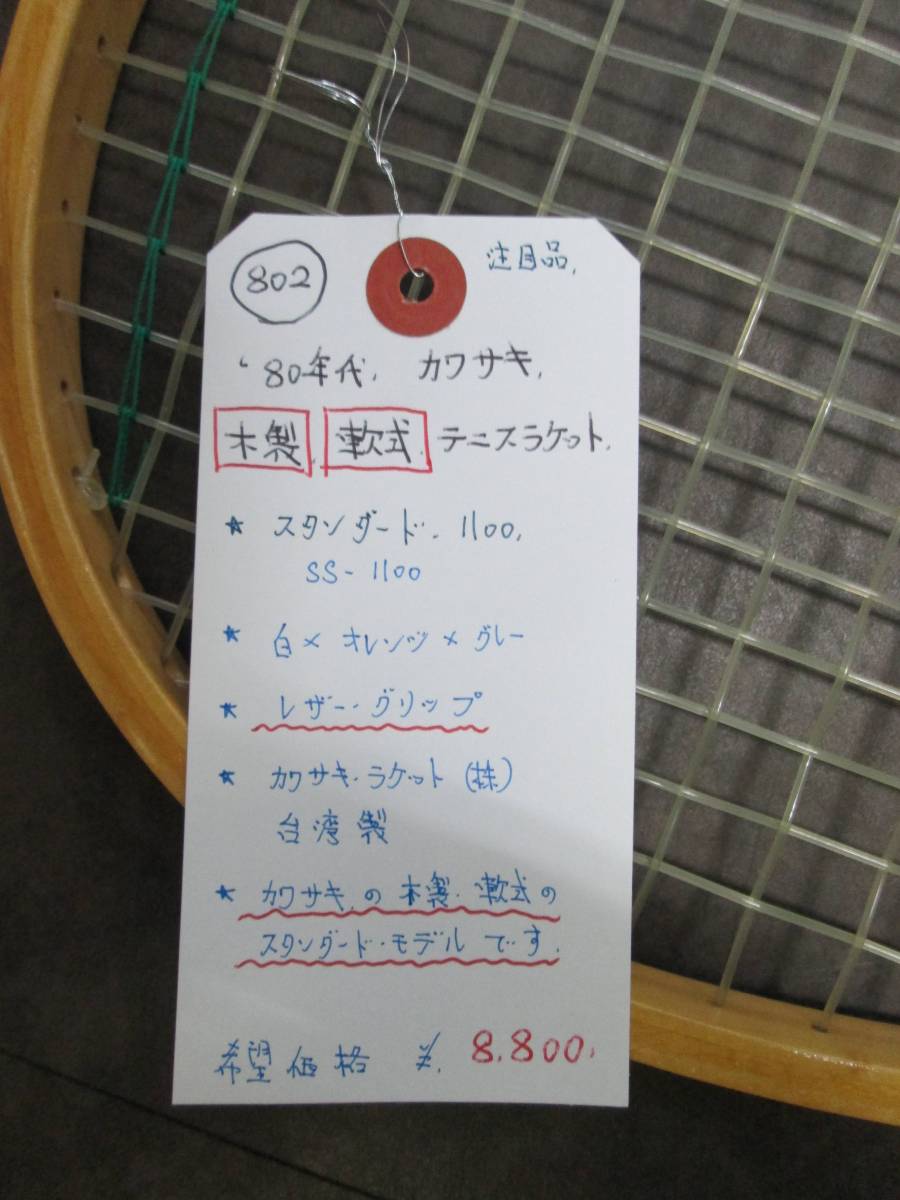 802
注目品,
'80年代, カワサキ,
木製, 軟式, テニスラケット,
★ スタンダード・1100,
SS-1100
★ 白×オレンジ×グレー
★ レザー・グリップ
★ カワサキ・ラケット(株)
台湾製
★ カワサキ,の木製・軟式の
スタンダード・モデルです.
希望価格 ¥, 8,800,